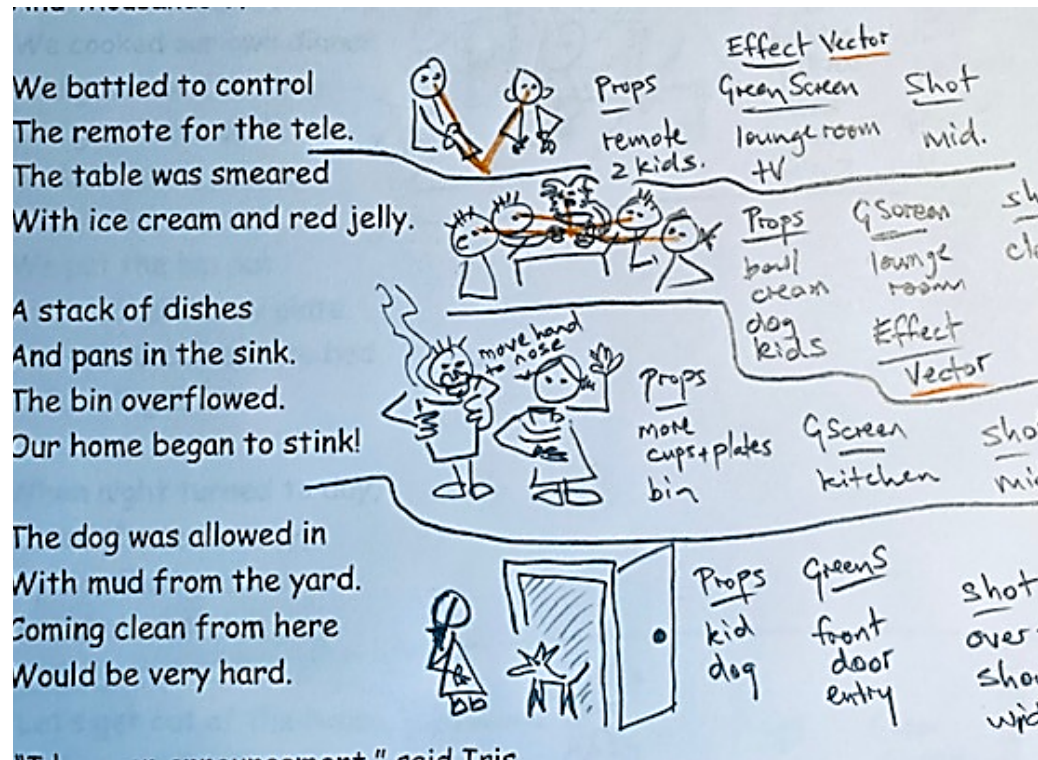 We battled to control
The remote for the tele.
The table was smeared
With ice cream and red jelly.
A stack of dishes
And pans in the sink.
The bin overflowed.
Our home began to stink!
The dog was allowed in
With mud from the yard.
Coming clean from here
Would be very hard.
said Iris
Effect Vector
Props
Green Screen
Shot
remote
2 kids.
lounge room
tv
mid.
Props
GScreen
bowl
cream
dog
kids
lounge
room
Effect
Vector
move hand
to nose
Props
more
cups+plates
bin
GScreen
kitchen
Props
kid
dog
GreenS
front
door
entry
shot
over